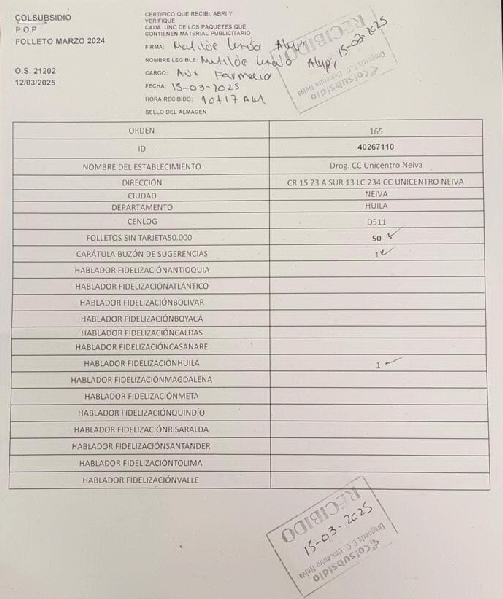 COLSUBSIDIO
P.O.P
FOLLETO MARZO 2024
O.S. 21202
12/03/2025
CERTIFICO QUE RECIBI, ABRI Y
VERIFIQUE
CADA UNO DE LOS PAQUETES QUE
CONTIENEN MATERIAL PUBLICITARIO
FIRMA: Matilde
NOMBRE LEGIBLE: Matilde
CARGO: Aux Farmacia
FECHA: 15-03-2025
HORA RECIBIDO: 10:17 AM
SELLO DEL ALMACEN
RECIBIDO
15-03-2025
Colsubsidio
ORDEN 165
ID 40267110
NOMBRE DEL ESTABLECIMIENTO Drog. CC Unicentro Neiva
DIRECCIÓN CR 15 23 A SUR 13 LC 234 CC UNICENTRO NEIVA
CIUDAD NEIVA
DEPARTAMENTO HUILA
CENLOG 0511
FOLLETOS SIN TARJETA50.000 50
CARÁTULA BUZÓN DE SUGERENCIAS 1
HABLADOR FIDELIZACIÓNANTIOQUIA
HABLADOR FIDELIZACIÓNATLÁNTICO
HABLADOR FIDELIZACIÓNBOLIVAR
HABLADOR FIDELIZACIÓNBOYACA
HABLADOR FIDELIZACIÓNCALDAS
HABLADOR FIDELIZACIÓNCASANARE
HABLADOR FIDELIZACIÓNHUILA 1
HABLADOR FIDELIZACIÓNMAGDALENA
HABLADOR FIDELIZACIÓNMETA
HABLADOR FIDELIZACIÓNQUINDÍO
HABLADOR FIDELIZACIÓNRISARALDA
HABLADOR FIDELIZACIÓNSANTANDER
HABLADOR FIDELIZACIÓNTOLIMA
HABLADOR FIDELIZACIÓNVALLE
RECIBIDO
15-03-2025
Colsubsidio